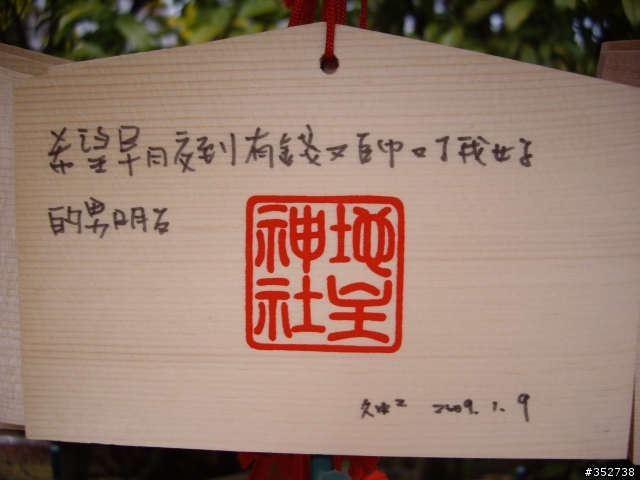 希望早日交到有錢又帥 我好
的男朋友
地主
神社
2009. 1. 9
#352738